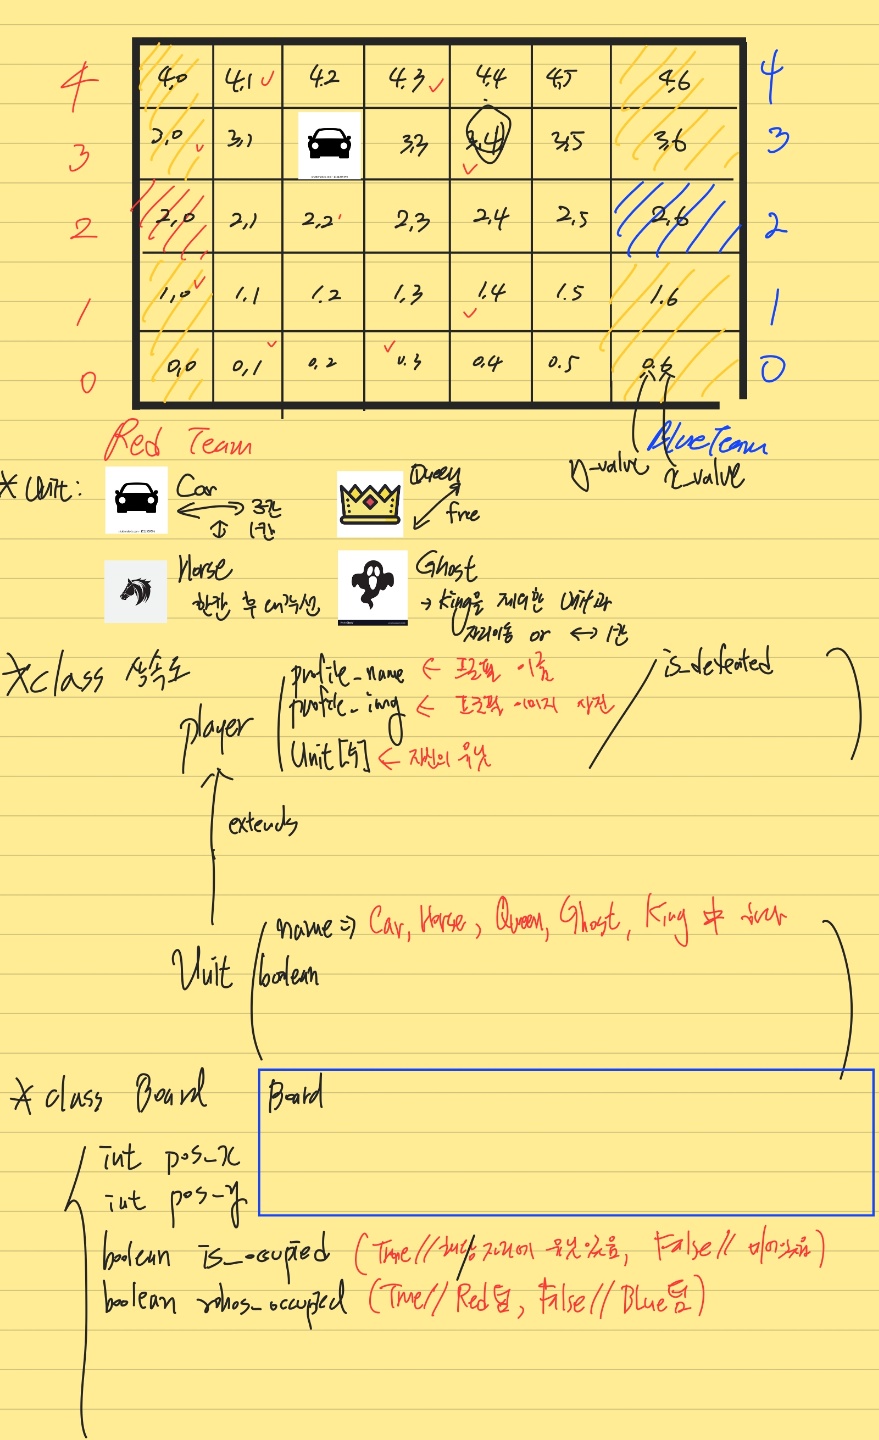 4 4,0 4,1 4.2 4.3 4,4 4,5 4,6 4
3 3,0 3,1 3,3 3,4 3,5 3,6 3
2 2,0 2,1 2,2 2,3 2,4 2,5 2,6 2
1 1,0 1.1 1.2 1,3 1.4 1.5 1.6 1
0 0,0 0,1 0.2 0.3 0.4 0.5 0.6 0
Red Team Blue Team
y_value x_value
* Unit:
Car
3칸
1칸
Queen
free
Horse
한칸 후 대각선
Ghost
→ King을 제외한 Unit과
자리이동 or ↔ 1칸
*class 상속도
player
profile_name ← 프로필 이름
profile_img ← 프로필 이미지 사진
Unit[5] ← 자신의 유닛
is_defeated
extends
Unit
name ⇒ Car, Horse, Queen, Ghost, King 中 하나
boolean
* class Board
Board
int pos_x
int pos_y
boolean is_occupied (True // 해당 자리에 유닛있음, False // 비어있음)
boolean whos_occupied (True // Red팀, False // Blue팀)